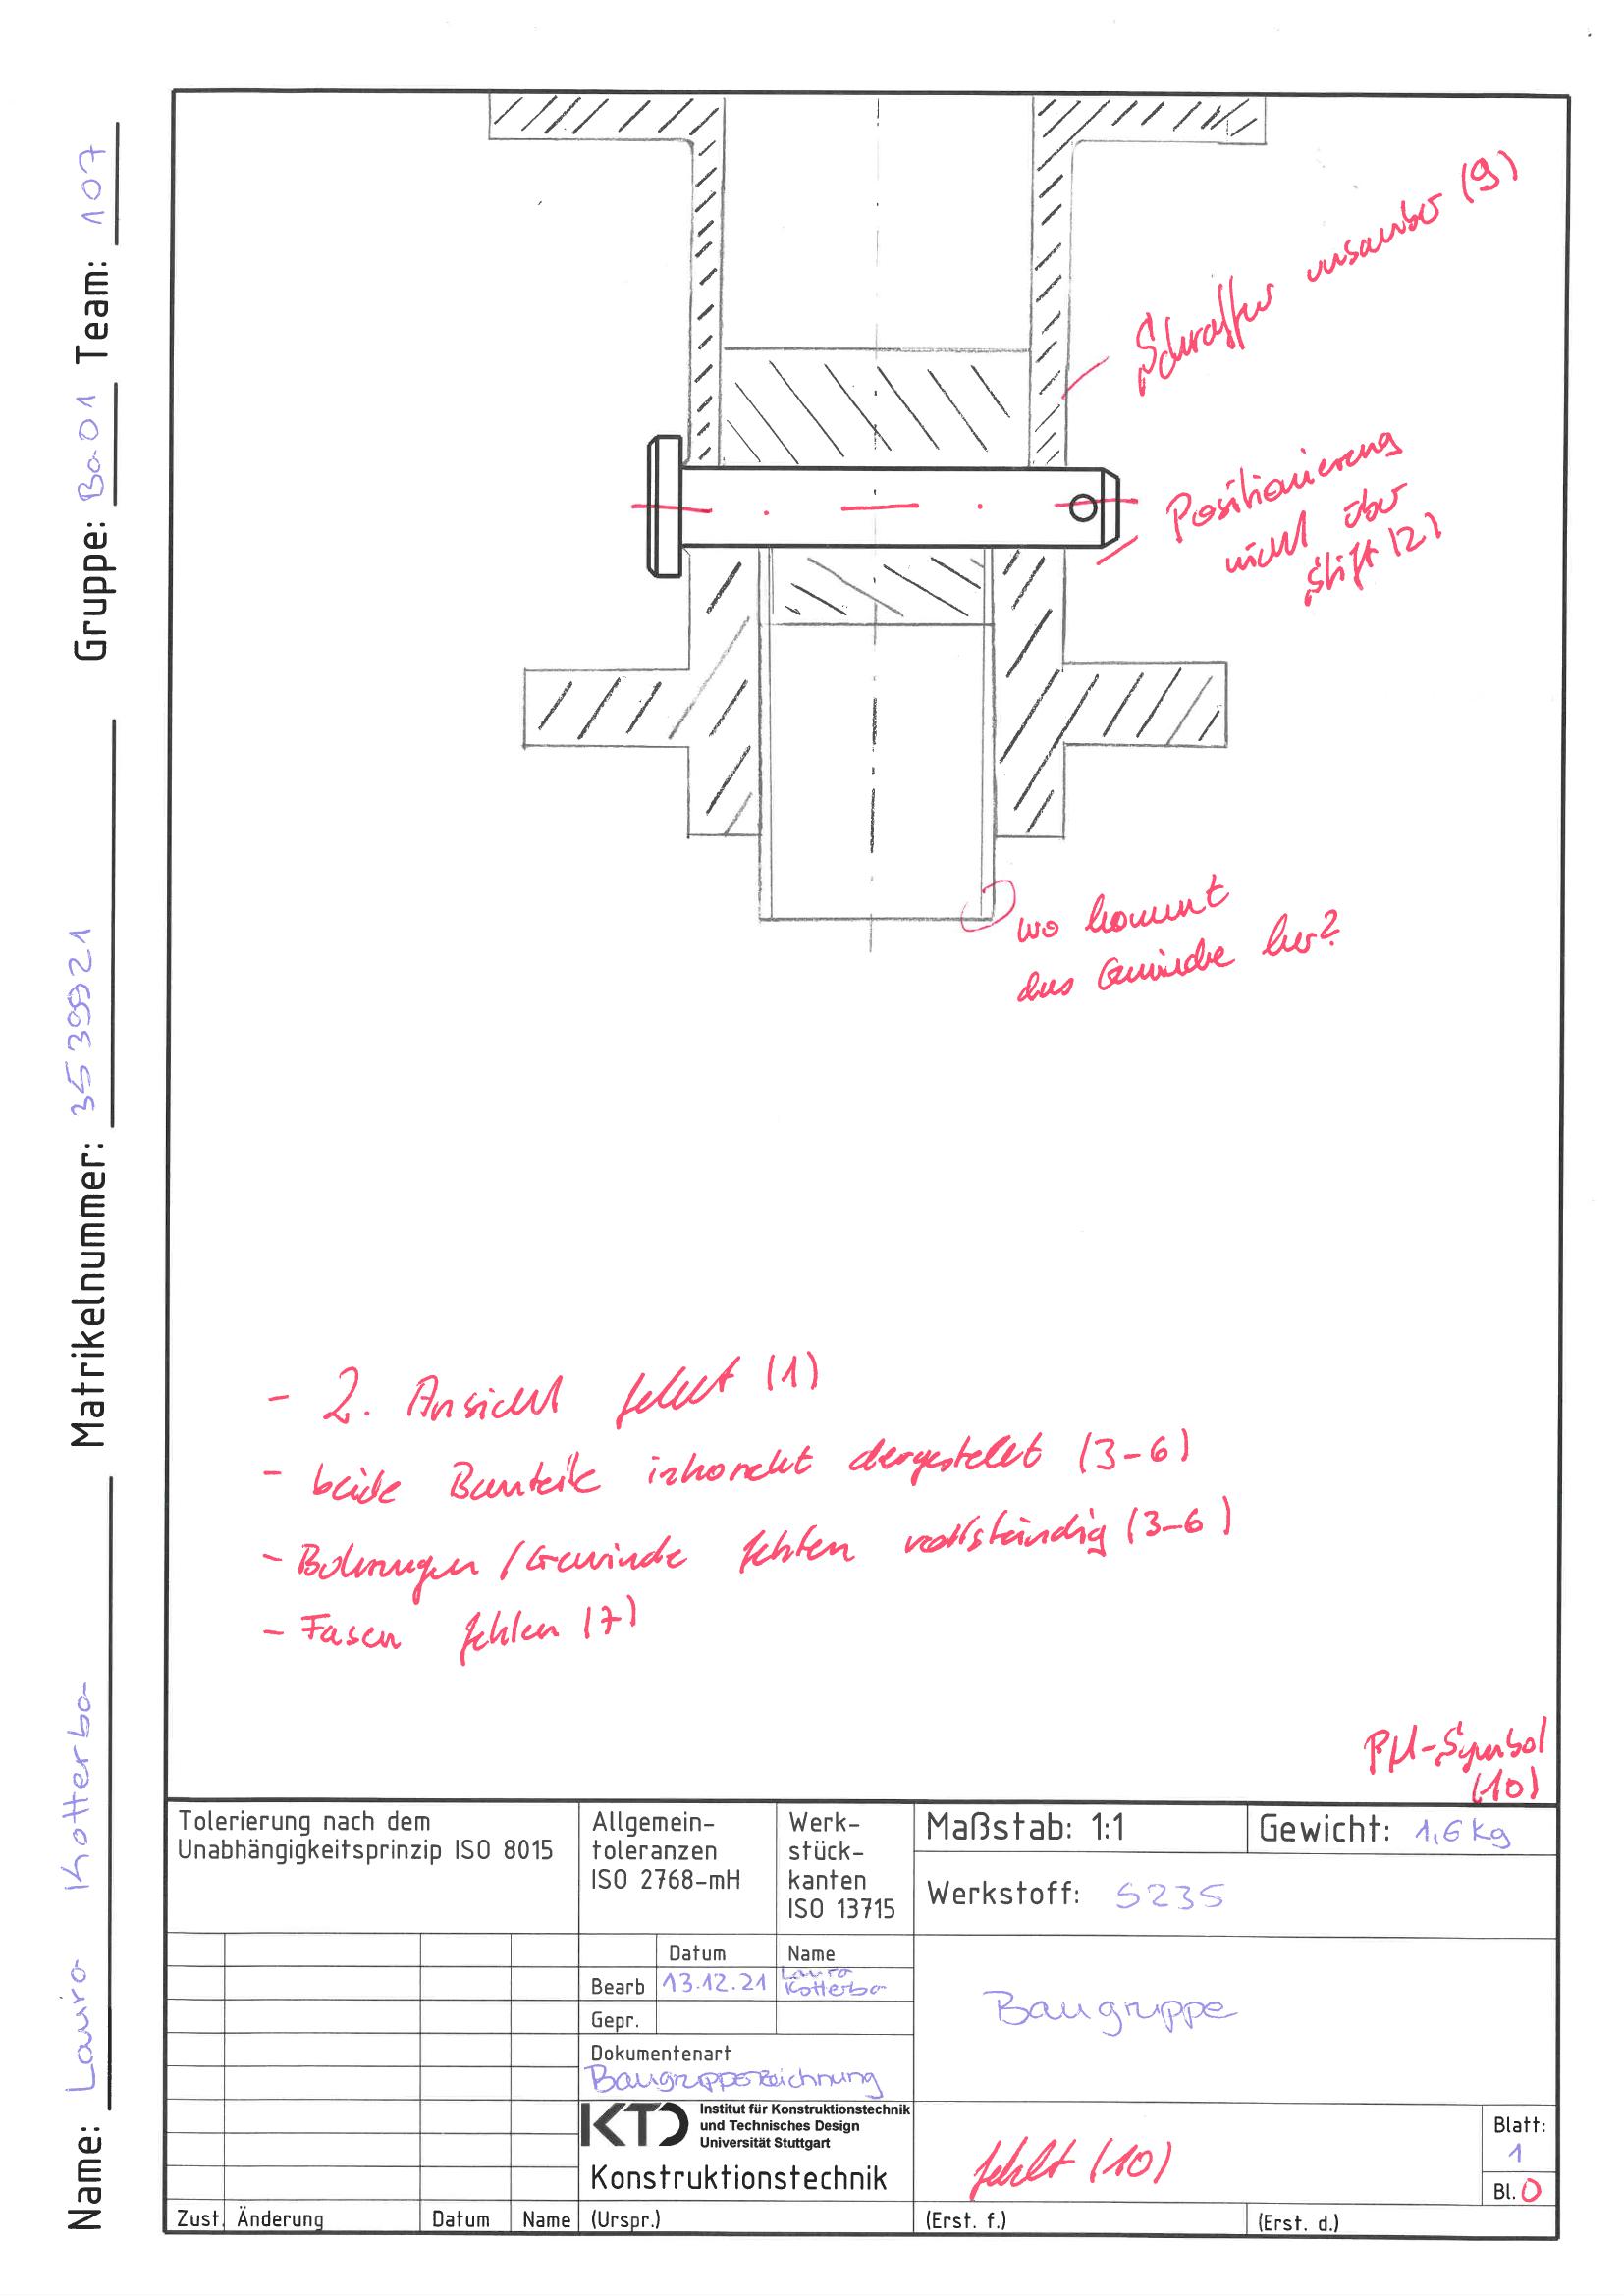 Name: Laura Kotterba Matrikelnummer: 3539921 Gruppe: Ba01 Team: 107
Schraffur unsauber (9)
Positionierung
nicht über
Stift (2)
wo kommt
das Gewinde her?
- 2. Ansicht fehlt (1)
- beide Bauteile inkorrekt dargestellt (3-6)
- Bohrungen / Gewinde fehlen vollständig (3-6)
- Fasen fehlen (7)
PM-Symbol
(10)
Tolerierung nach dem
Unabhängigkeitsprinzip ISO 8015
Allgemein-
toleranzen
ISO 2768-mH
Werk-
stück-
kanten
ISO 13715
Maßstab: 1:1
Gewicht: 1,6 kg
Werkstoff: S235
Datum Name
Bearb 13.12.21 Laura
Kotterba
Gepr.
Dokumentenart
Baugruppenzeichnung
Baugruppe
KTD
Institut für Konstruktionstechnik
und Technisches Design
Universität Stuttgart
Konstruktionstechnik
fehlt (10)
Blatt:
1
Bl. 0
Zust. Änderung Datum Name (Urspr.) (Erst. f.) (Erst. d.)